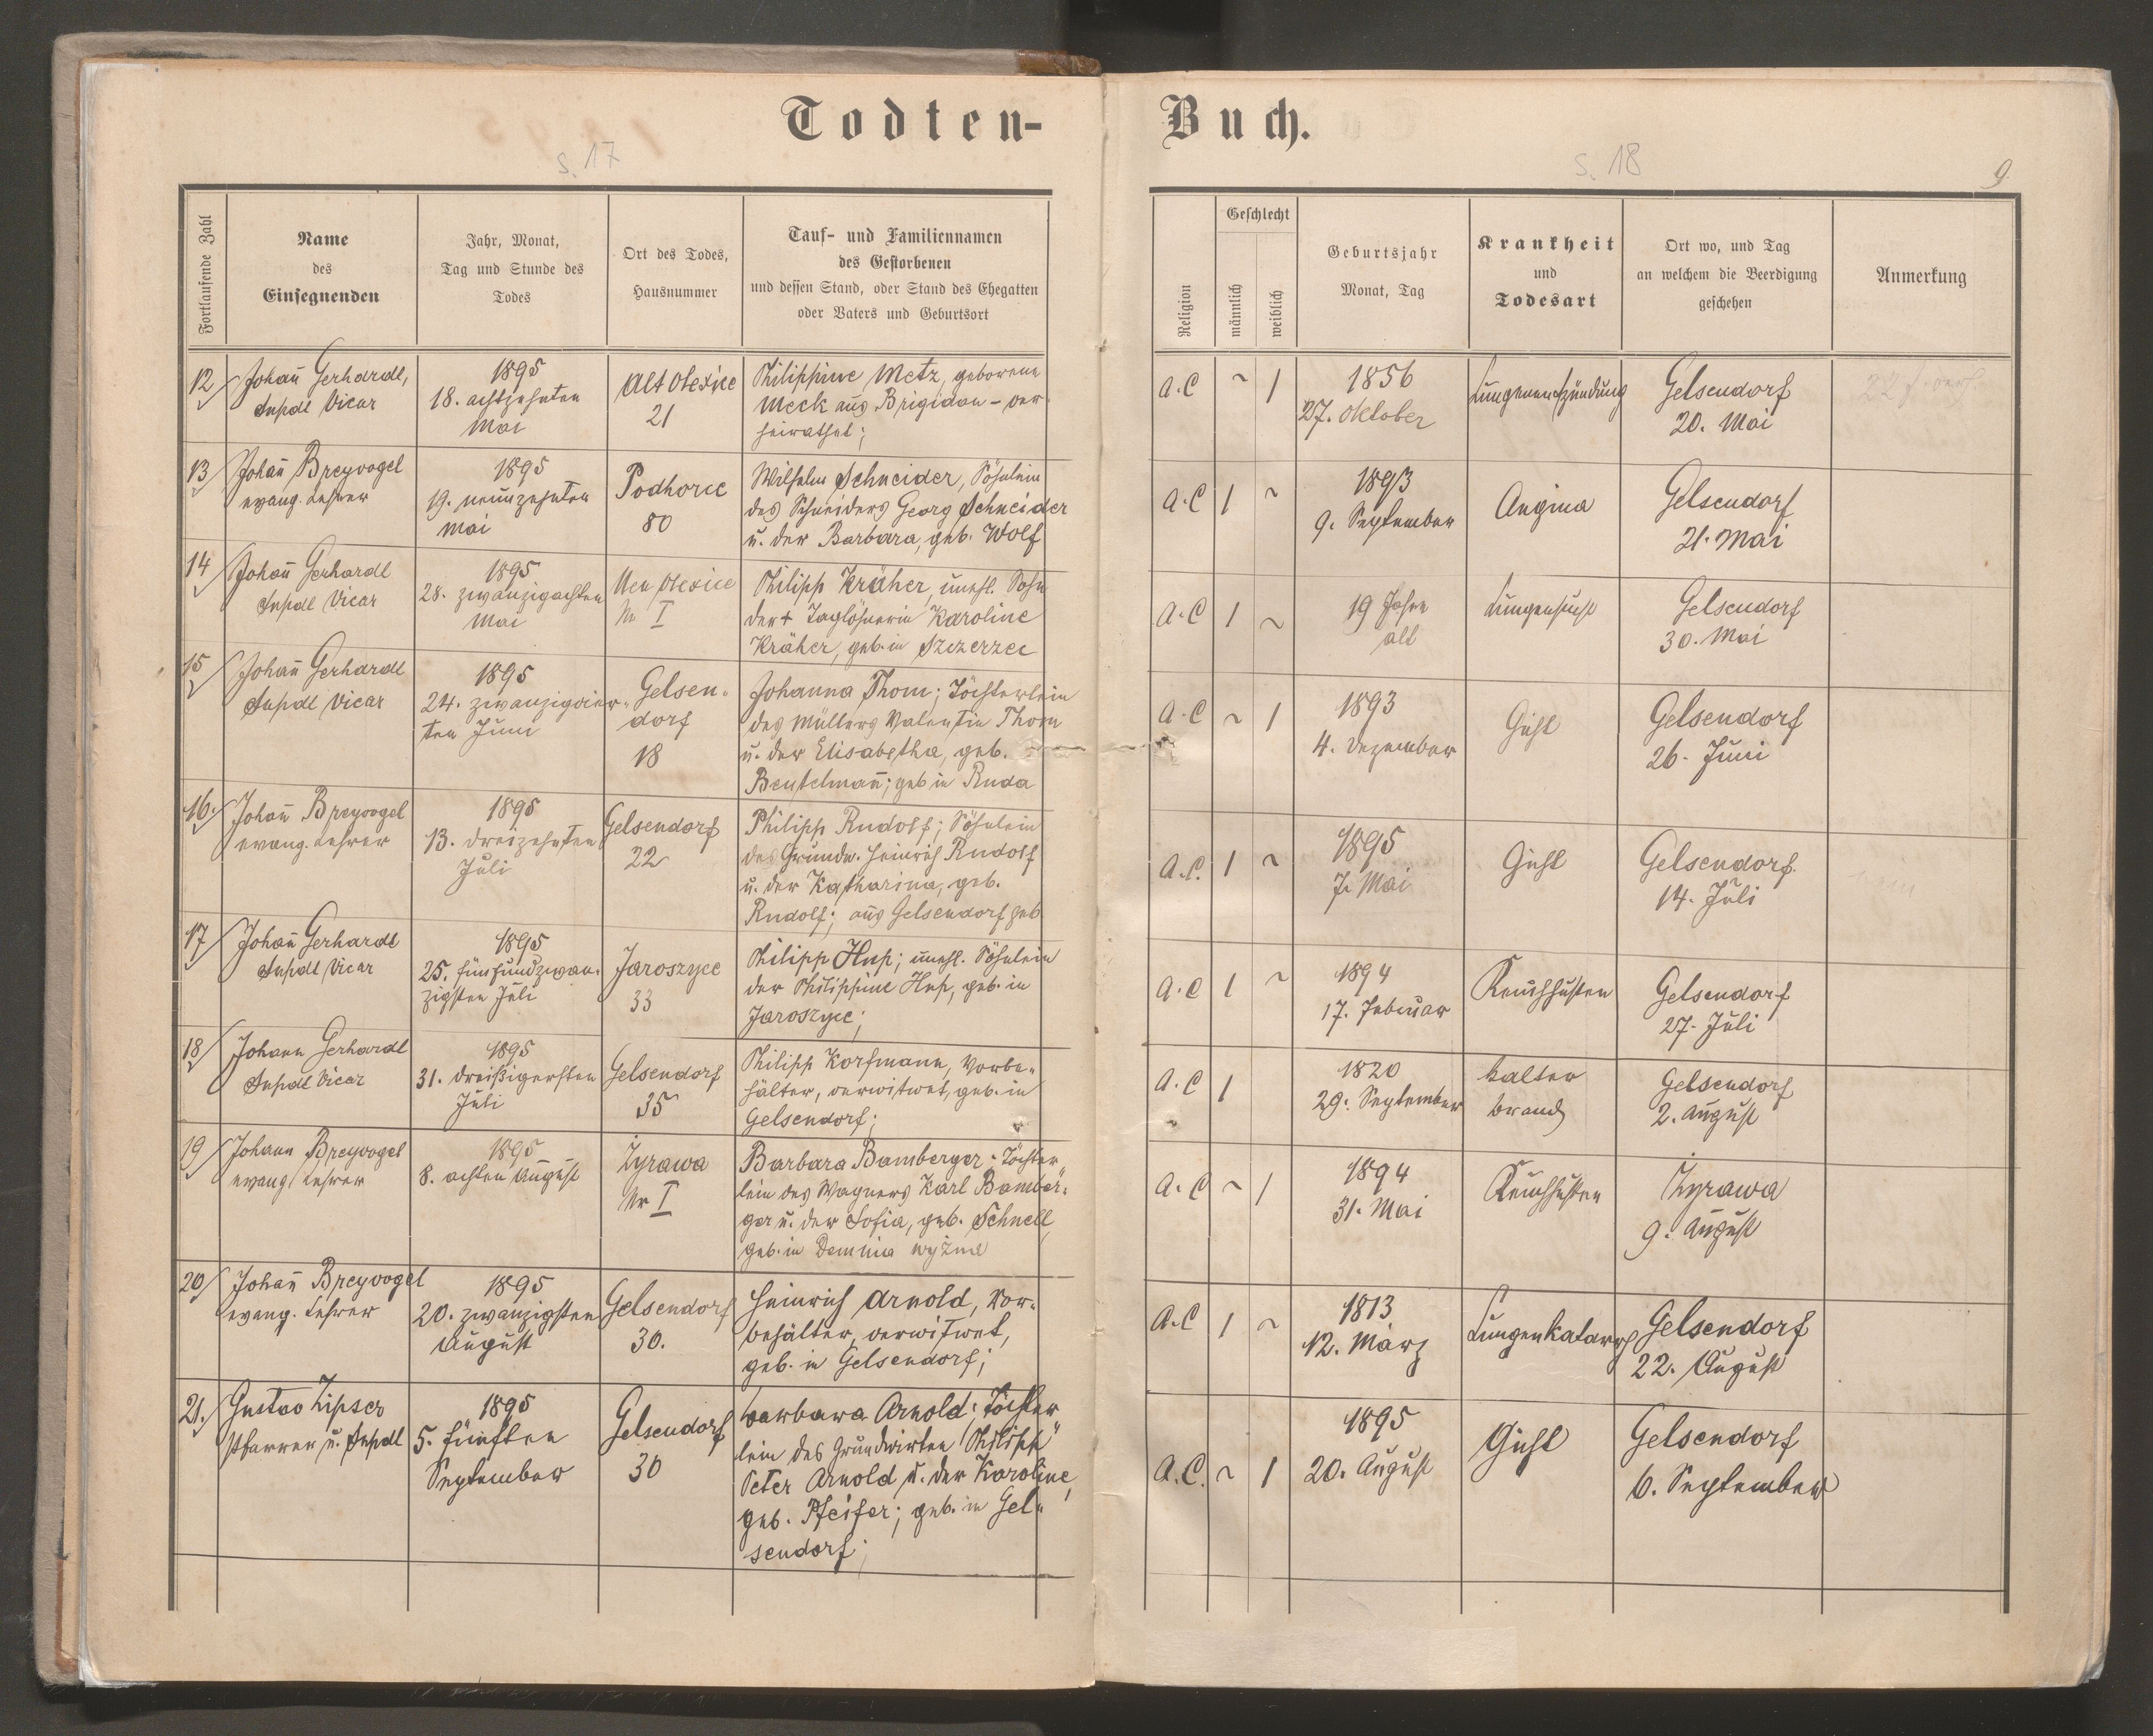 Todten-
Buch.
s. 17
s. 18
9.
Fortlaufende Zahl
Name
des
Einsegnenden
Jahr, Monat,
Tag und Stunde des
Todes
Ort des Todes,
Hausnummer
Tauf- und Familiennamen
des Gestorbenen
und dessen Stand, oder Stand des Ehegatten
oder Vaters und Geburtsort
Religion
Geschlecht
männlich
weiblich
Geburtsjahr
Monat, Tag
Krankheit
und
Todesart
Ort wo, und Tag
an welchem die Beerdigung
geschehen
Anmerkung
12
Johañ Gerhardt,
Inspdt Vicar
1895
18. achtzehnten
Mai
Alt Olexice
21
Philippine Metz, geborene
Meck aus Brigidau - ver
heirathet;
A.C ~ 1
1856
27. Oktober
Lungenentzündung
Gelsendorf
20. Mai
13
Johañ Breyvogel
evang. Lehrer
1895
19. neunzehnten
Mai
Podhorce
80
Wilhelm Schneider, Söhnlein
des Schneiders Georg Schneider
u. der Barbara, geb. Wolf
A.C 1 ~
1893
9. September
Angina
Gelsendorf
21. Mai
14
Johañ Gerhardt
Inspdt Vicar
1895
28. zwanzigachten
Mai
Neu Olexice
Nr I
Philipp Kräher, unehl. Sohn
der + Taglöhnerin Karoline
Kräher, geb. in Szczerzec
A.C 1 ~
19 Jahre
alt
Lungensucht
Gelsendorf
30. Mai
15
Johañ Gerhardt
Inspdt Vicar
1895
24. zwanzigvier-
ten Juni
Gelsen-
dorf
18
Johanna Thom; Töchterlein
des Müllers Valentin Thom
u. der Elisabetha, geb.
Beutelmañ; geb in Ruda
A.C ~ 1
1893
4. Dezember
Gicht
Gelsendorf
26. Juni
16.
Johañ Breyvogel
evang. Lehrer
1895
13. dreizehnten
Juli
Gelsendorf
22
Philipp Rudolf; Söhnlein
des Grundw. Heinrich Rudolf
u. der Katharina, geb.
Rudolf; aus Gelsendorf geb
A.C. 1 ~
1895
7. Mai
Gicht
Gelsendorf.
14. Juli
17
Johañ Gerhardt
Inspdt Vicar
1895
25. fünfundzwan-
zigsten Juli
Jaroszyce
33
Philipp Hup; unehl. Söhnlein
der Philippine Hup, geb. in
Jaroszyce;
A.C 1 ~
1894
17. Februar
Keuchhusten
Gelsendorf
27. Juli
18
Johann Gerhardt
Inspdt Vicar
1895
31. dreißigersten
Juli
Gelsendorf
35
Philipp Korfmann, Vorbe-
hälter, verwitwet, geb. in
Gelsendorf;
A.C 1
1820
29. September
kalter
brand
Gelsendorf
2. August
19
Johann Breyvogel
evang. Lehrer
1895
8. achten August
Żyrawa
Nr I
Barbara Bamberger; Töchter
lein des Wagners Karl Bamber-
ger u. der Sofia, geb. Schnell,
geb. in Demnia wyżne
A.C ~ 1
1894
31. Mai
Keuchhusten
Żyrawa
9. August
20
Johañ Breyvogel
evang. Lehrer
1895
20. zwanzigsten
August
Gelsendorf
30.
Heinrich Arnold, Vor-
behälter, verwitwet,
geb. in Gelsendorf;
A.C 1 ~
1813
12. März
Lungenkatarrh
Gelsendorf
22. August
21.
Gustav Lipser
Pfarrer u. Inspdt
1895
5. fünften
September
Gelsendorf
30
Barbara Arnold; Töchter
lein des Grundwirten Philipp
Peter Arnold u. der Karoline,
geb. Pfeifer; geb. in Gel-
sendorf;
A.C. ~ 1
1895
20. August
Gicht
Gelsendorf
6. September